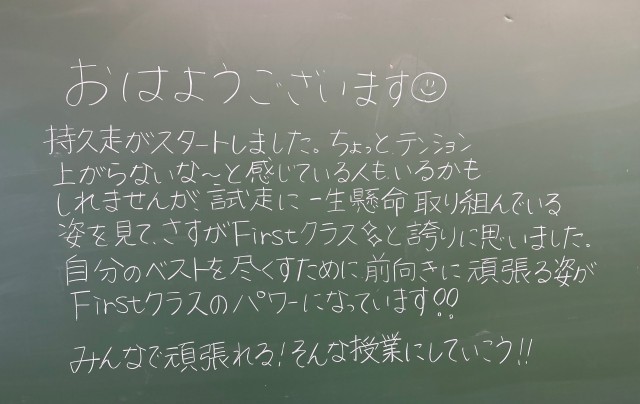 おはようございます☺
持久走がスタートしました。ちょっとテンション
上がらないな〜と感じている人もいるかも
しれませんが、試走に一生懸命取り組んでいる
姿を見て、さすがFirstクラス✨と誇りに思いました。
自分のベストを尽くすために前向きに頑張る姿が
Firstクラスのパワーになっています!!
みんなで頑張れる!そんな授業にしていこう!!